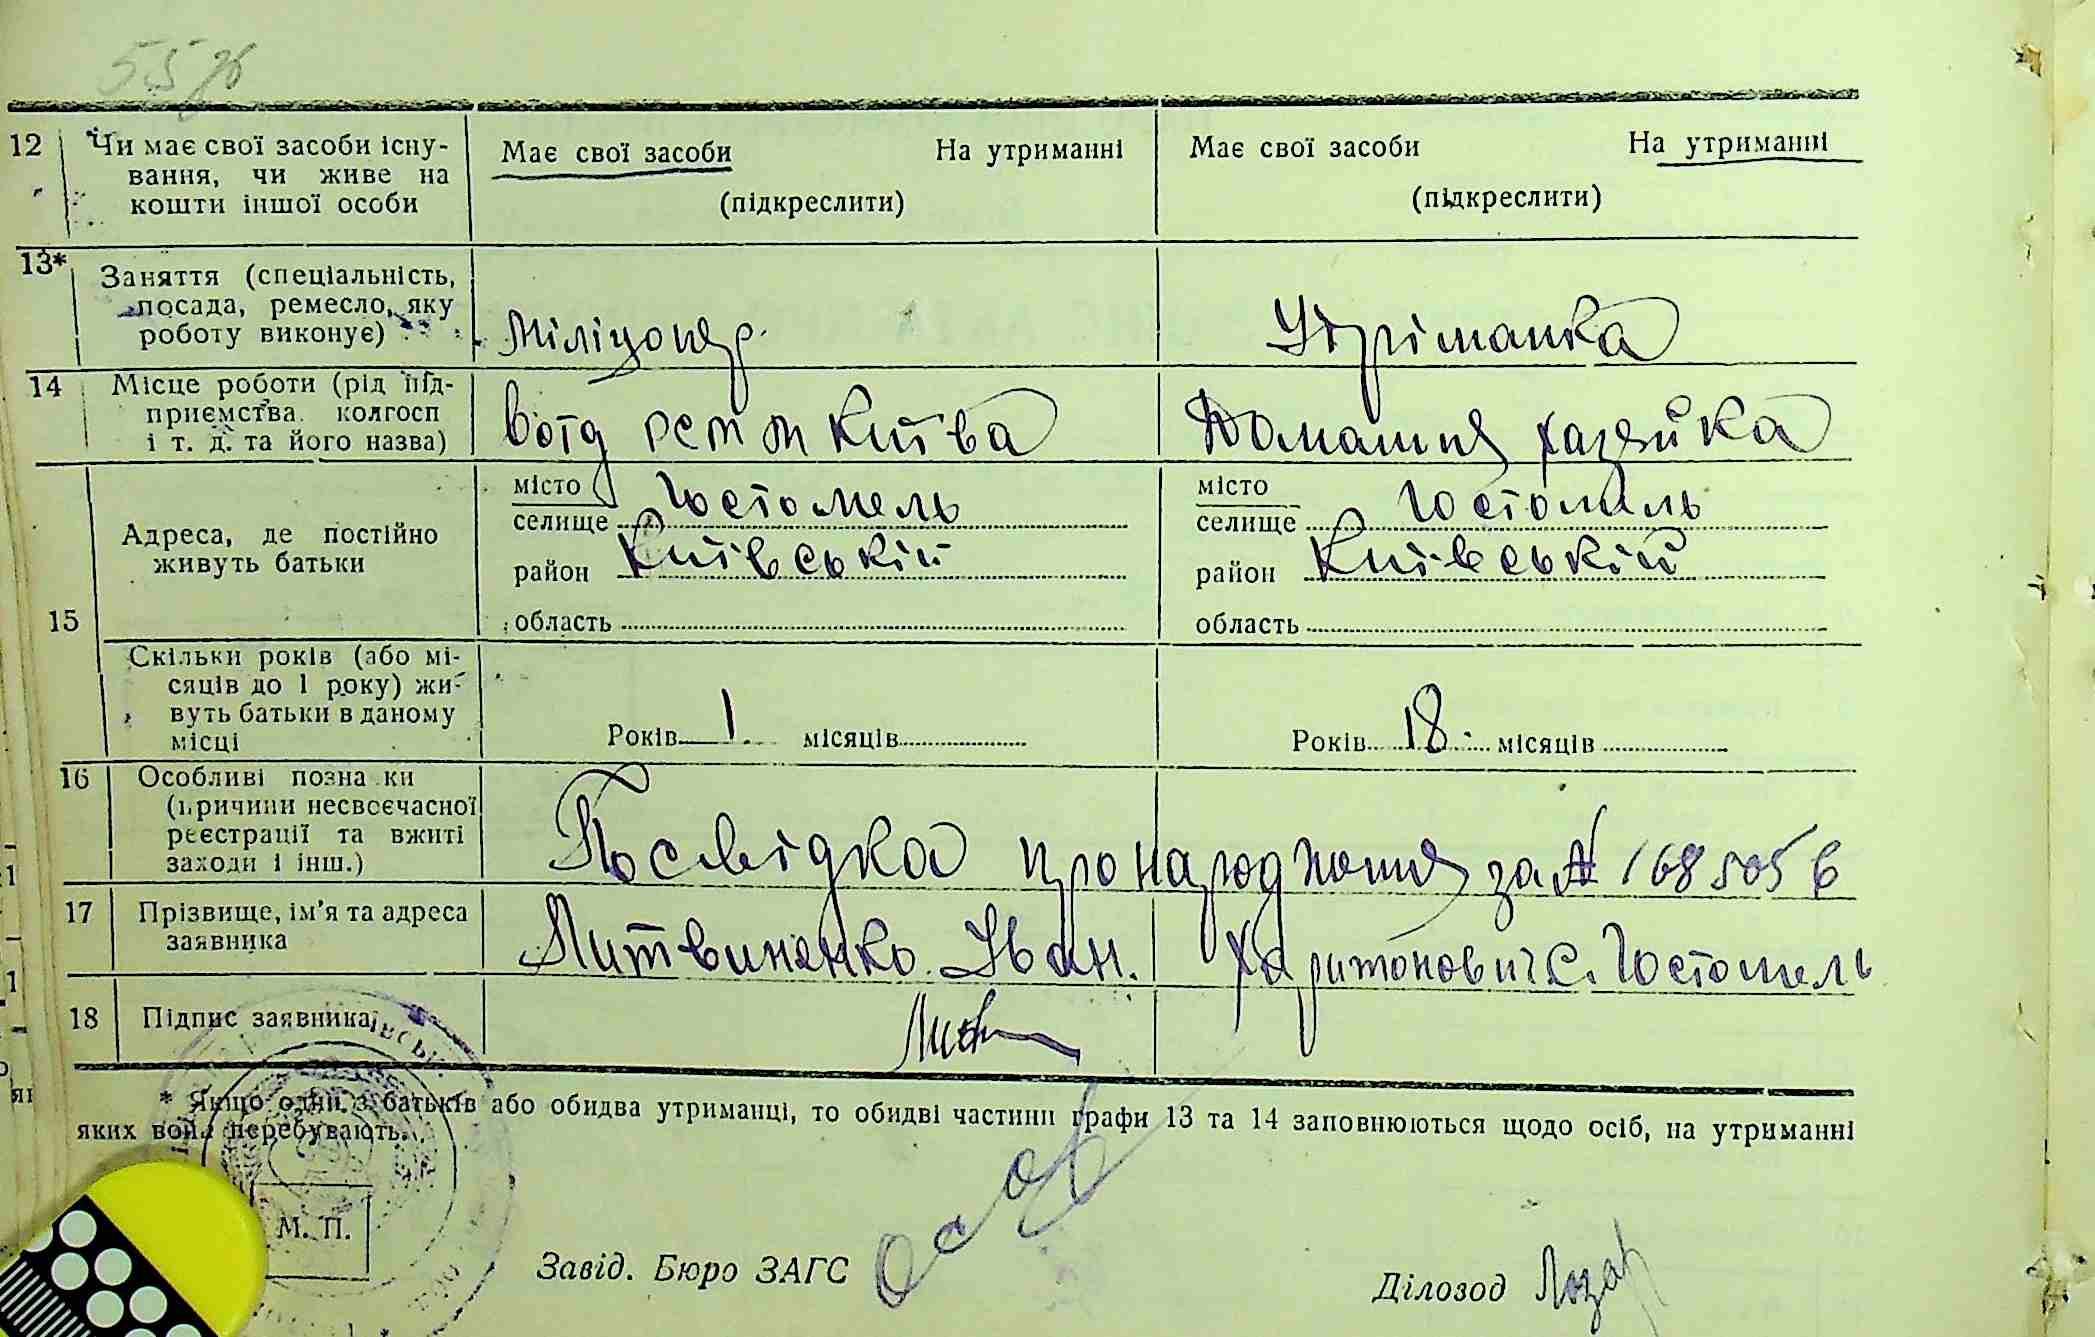 12 Чи має свої засоби існу-
вання, чи живе на
кошти іншої особи
Має свої засоби На утриманні
(підкреслити)
Має свої засоби На утриманні
(підкреслити)
13* Заняття (спеціальність,
посада, ремесло, яку
роботу виконує)
Міліціонер
Утріманка
14 Місце роботи (рід під-
приємства, колгосп
і т. д. та його назва)
Київа
Домашня хазяйка
15 Адреса, де постійно
живуть батьки
місто
селище Гостомель
район Київській
область
місто
селище Гостомиль
район Київській
область
Скільки років (або мі-
сяців до 1 року) жи-
вуть батьки в даному
місці
Років 1 місяців
Років 18 місяців
16 Особливі позна ки
(причини несвоєчасної
реєстрації та вжиті
заходи і інш.)
Посвідка про народження за №
17 Прізвище, ім'я та адреса
заявника
Литвиненко Іван. Харитонович с. Гостомель
18 Підпис заявника
* Якщо один з батьків або обидва утриманці, то обидві частини графи 13 та 14 заповнюються щодо осіб, на утриманні
яких вони перебувають.
М. П.
Завід. Бюро ЗАГС
Діловод Лозар